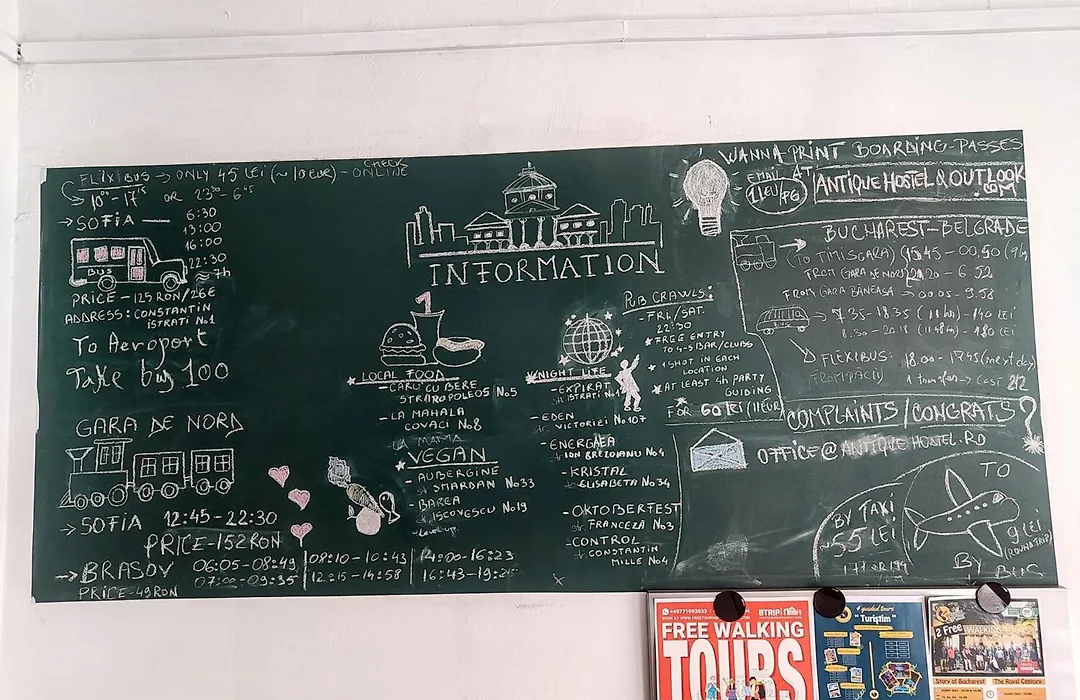 FLIXIBUS → ONLY 45 LEI (~10 EUR) - ONLINE
CHECK
10⁰⁰ - 17¹⁵ OR 23³⁰ - 6⁴⁵
→ SOFIA — 6:30
13:00
16:00
22:30
≈ 7h
BUS
PRICE - 125 RON/26€
ADDRESS: CONSTANTIN
ISTRATI No1
To Aeroport
Take bus 100
GARA DE NORD
→ SOFIA 12:45 - 22:30
PRICE - 152 RON
→ BRASOV 06:05 - 08:49 08:10 - 10:43 14:00 - 16:23
07:00 - 09:35 12:15 - 14:58 16:43 - 19:25
PRICE - 49 RON
INFORMATION
LOCAL FOOD
- CARU CU BERE
STRAVROPOLEOS No5
- LA MAHALA
COVACI No8
- LA MAMA
VEGAN
- AUBERGINE
str SMARDAN No33
- BAREA
str. ISCOVESCU No19
NIGHT LIFE
- EXPIRAT
str ISTRATI No1
- EDEN
str. VICTORIEI No107
- ENERGAEA
ION BREZOIANU No4
- KRISTAL
ELISABETA No34
- OKTOBERFEST
str. FRANCEZA No3
- CONTROL
str. CONSTANTIN
MILLE No4
PUB CRAWLS:
- FRI./SAT.
22:30
FREE ENTRY
TO 4-5 BAR/CLUBS
1 SHOT IN EACH
LOCATION
AT LEAST 4h PARTY
GUIDING
FOR 60 lei (11EUR)
WANNA PRINT BOARDING-PASSES
EMAIL AT
1 LEU/PG
ANTIQUEHOSTEL@OUTLOOK
.COM
BUCHAREST - BELGRADE
(TO TIMISOARA) 15:45 - 00:50 (9h)
FROM GARA DE NORD 21:20 - 6:52
FROM GARA BĂNEASA → 00:05 - 9:58
BUS
→ 7:35 - 18:35 (11h) - 140 LEI
180 LEI
FLEXIBUS: 18:00 - 1745 (next day)
COMPLAINTS/CONGRATS?
OFFICE@ANTIQUEHOSTEL.RO
BY TAXI
55 LEI
TO
9 LEI
(ROUND TRIP)
BY BUS
+40771053033
BTRIP
FREE WALKING
TOURS
4 guided tours
"Turistim"
2 Free WALKING
Story of Bucharest The Royal Century